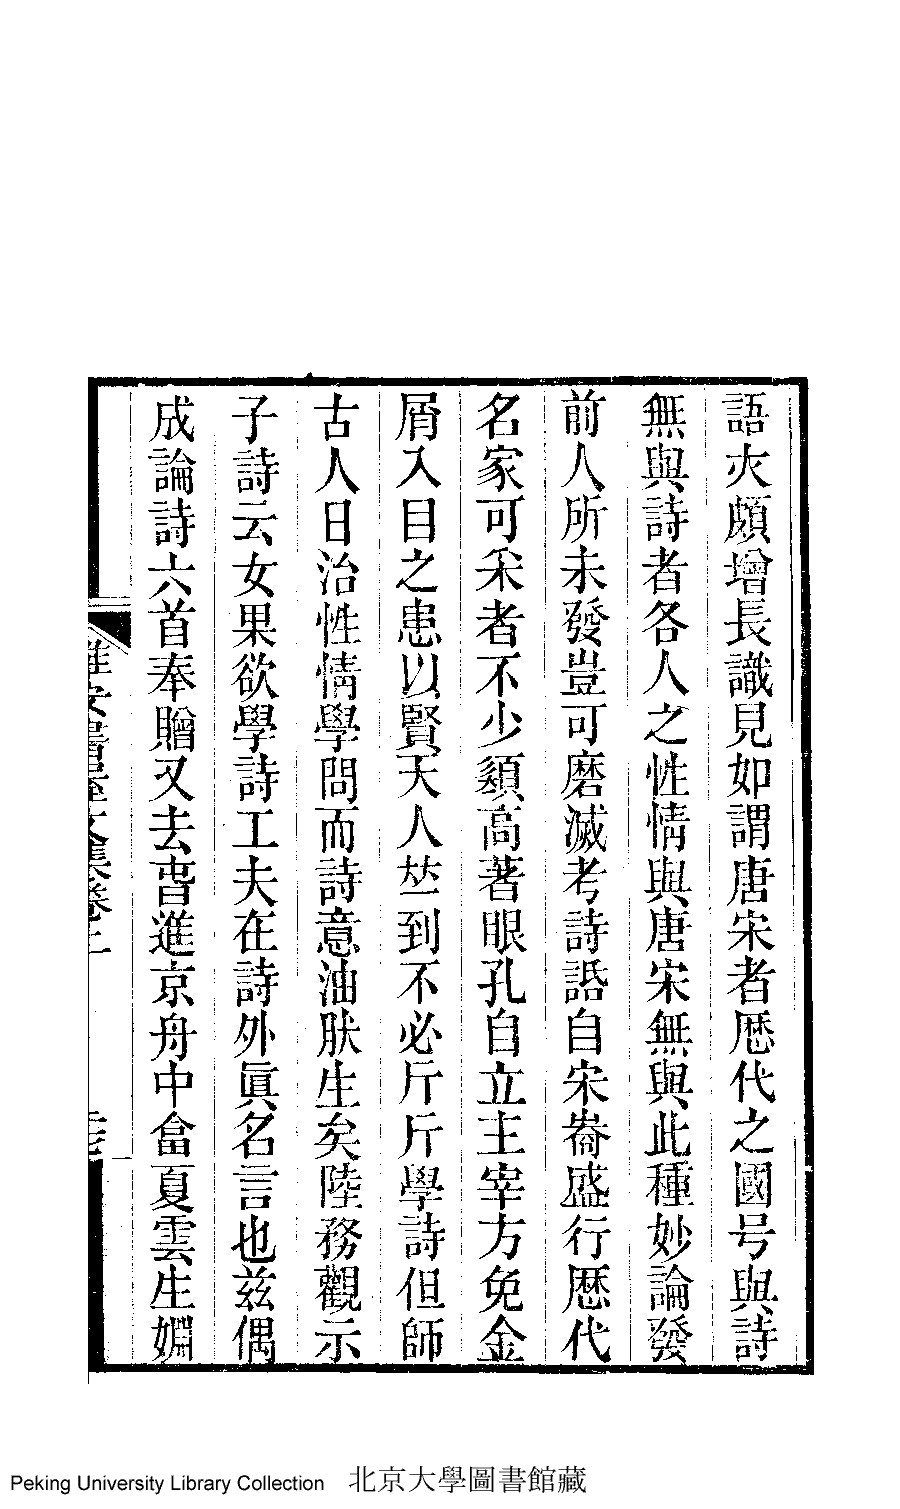 語夾頗增長識見如謂唐宋者歷代之國号與詩
無與詩者各人之性情與唐宋無與此種妙論發
前人所未發豈可磨滅考詩話自宋耑盛行歷代
名家可采者不少須高著眼孔自立主宰方免金
屑入目之患以賢天人竝到不必斤斤學詩但師
古人日治性情學問而詩意油肰生矣陸務觀示
子詩云女果欲學詩工夫在詩外眞名言也兹偶
成論詩六首奉贈又去𣆀進京舟中畣夏雲生嫺
文集卷二
Peking University Library Collection 北京大學圖書館藏